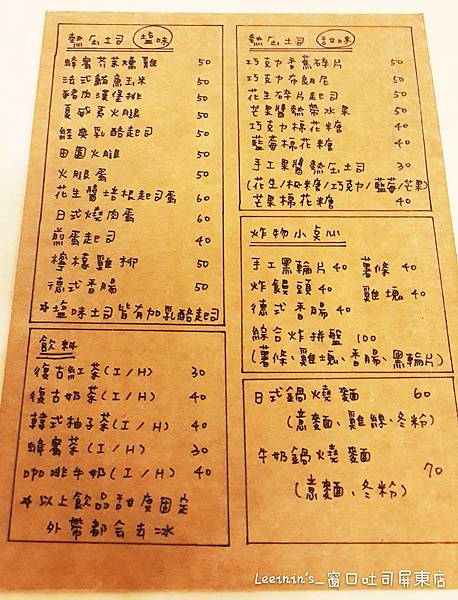 熱压土司 塩味
蜂蜜芥茉燻雞 50
法式鮪魚玉米 50
豬肉漢堡排 50
夏威夷火腿 50
經典乳酪起司 50
田園火腿 50
火腿蛋 50
花生醬培根起司蛋 60
日式燒肉蛋 60
煎蛋起司 40
檸檬雞柳 50
德式香腸 50
☆塩味土司皆有加乳酪起司
飲料
復古紅茶(I/H) 30
復古奶茶(I/H) 40
韓式柚子茶(I/H) 40
蜂蜜茶(I/H) 30
咖啡牛奶(I/H) 40
☆以上飲品甜度固定
外帶都会去冰
熱压土司 甜味
巧克力香蕉碎片 50
巧克力布朗尼 50
花生碎片起司 50
芒果醬熱帶水果 50
巧克力棉花糖 40
藍莓棉花糖 40
手工果醬熱压土司 30
(花生/椰糖/巧克力/藍莓/芒果)
芒果棉花糖 40
炸物小点心
手工黑輪片 40 薯條 40
炸饅頭 40 雞塊 40
德式香腸 40
綜合炸拼盤 100
(薯條、雞塊、香腸、黑輪片)
日式鍋燒麵 60
(意麵、雞絲、冬粉)
牛奶鍋燒麵 70
(意麵、冬粉)
Leeinin's_窗口吐司屏東店